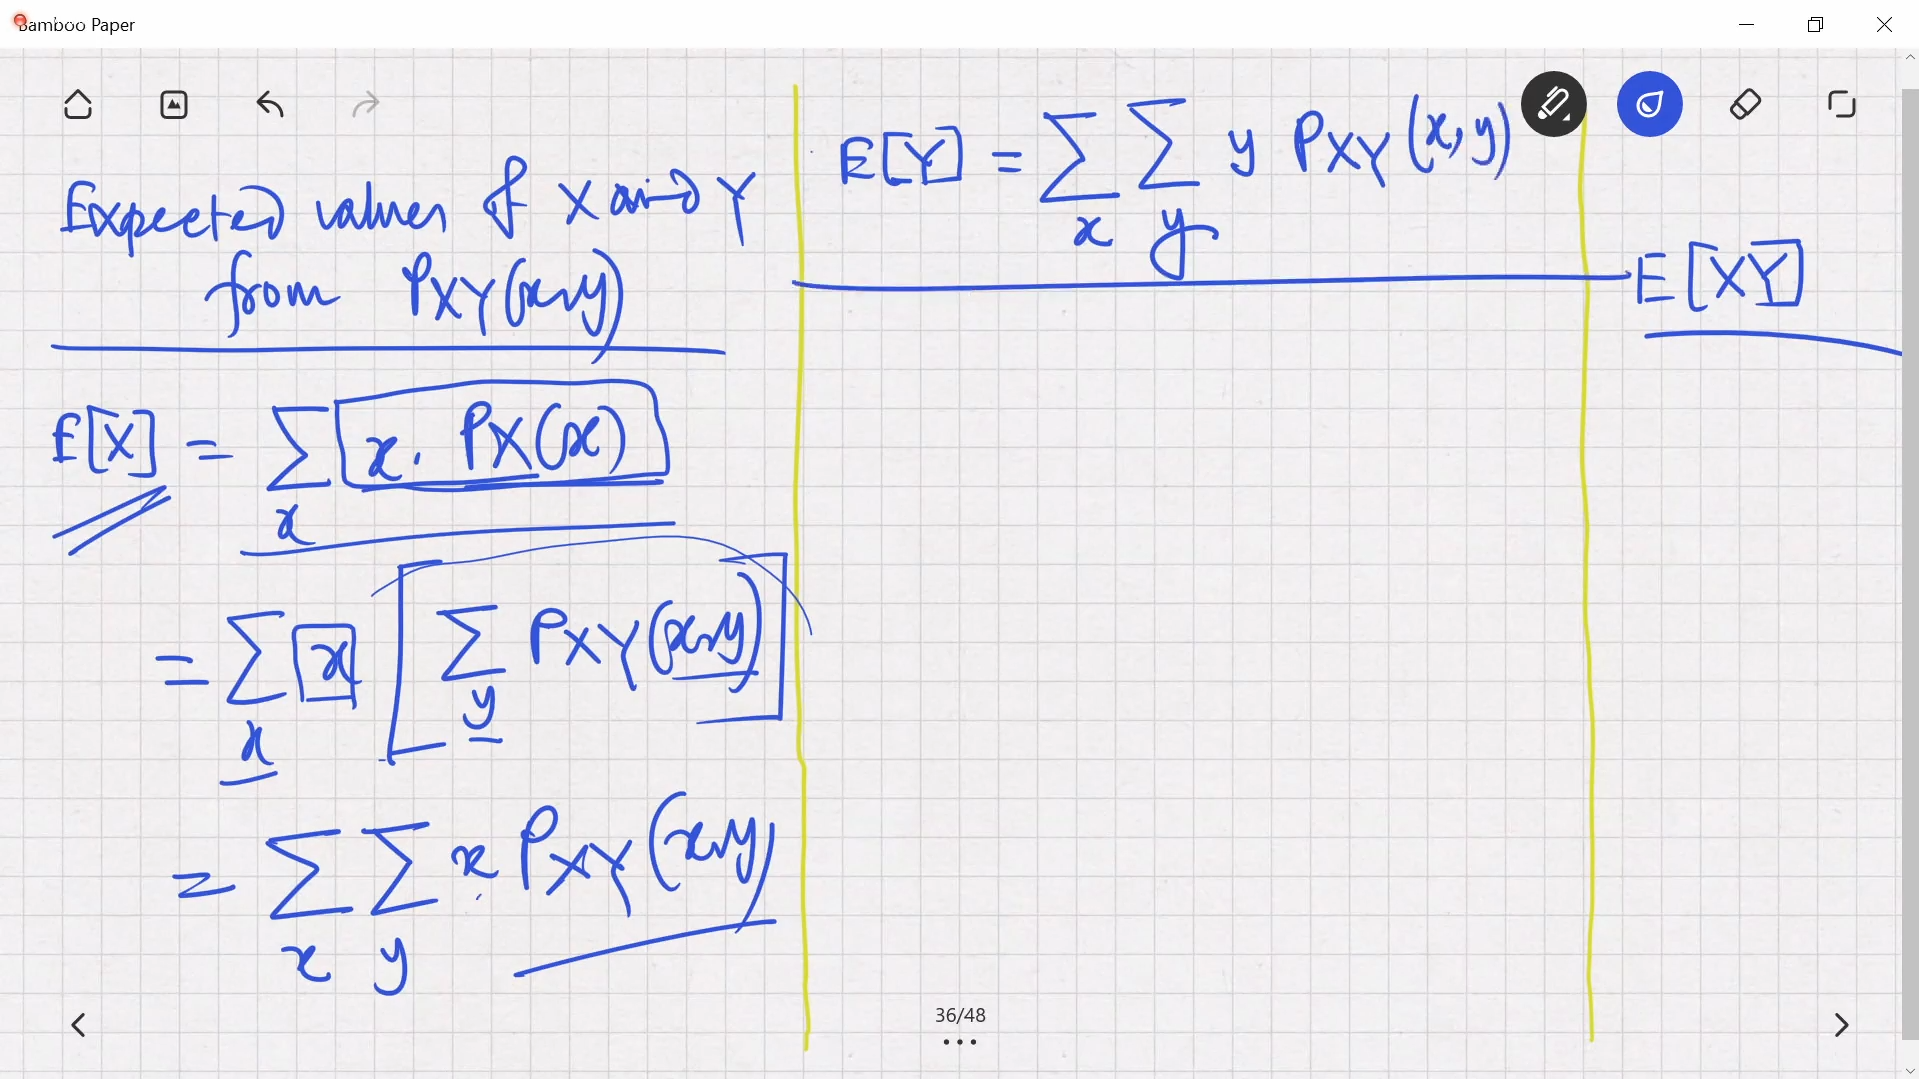 Bamboo Paper
Expected values of X and Y
from PXY(x,y)
E[X] = ∑ x . PX(x)
x
= ∑ x [ ∑ PXY(x,y) ]
x y
= ∑ ∑ x PXY(x,y)
x y
E[Y] = ∑ ∑ y PXY(x,y)
x y
E[XY]
36/48